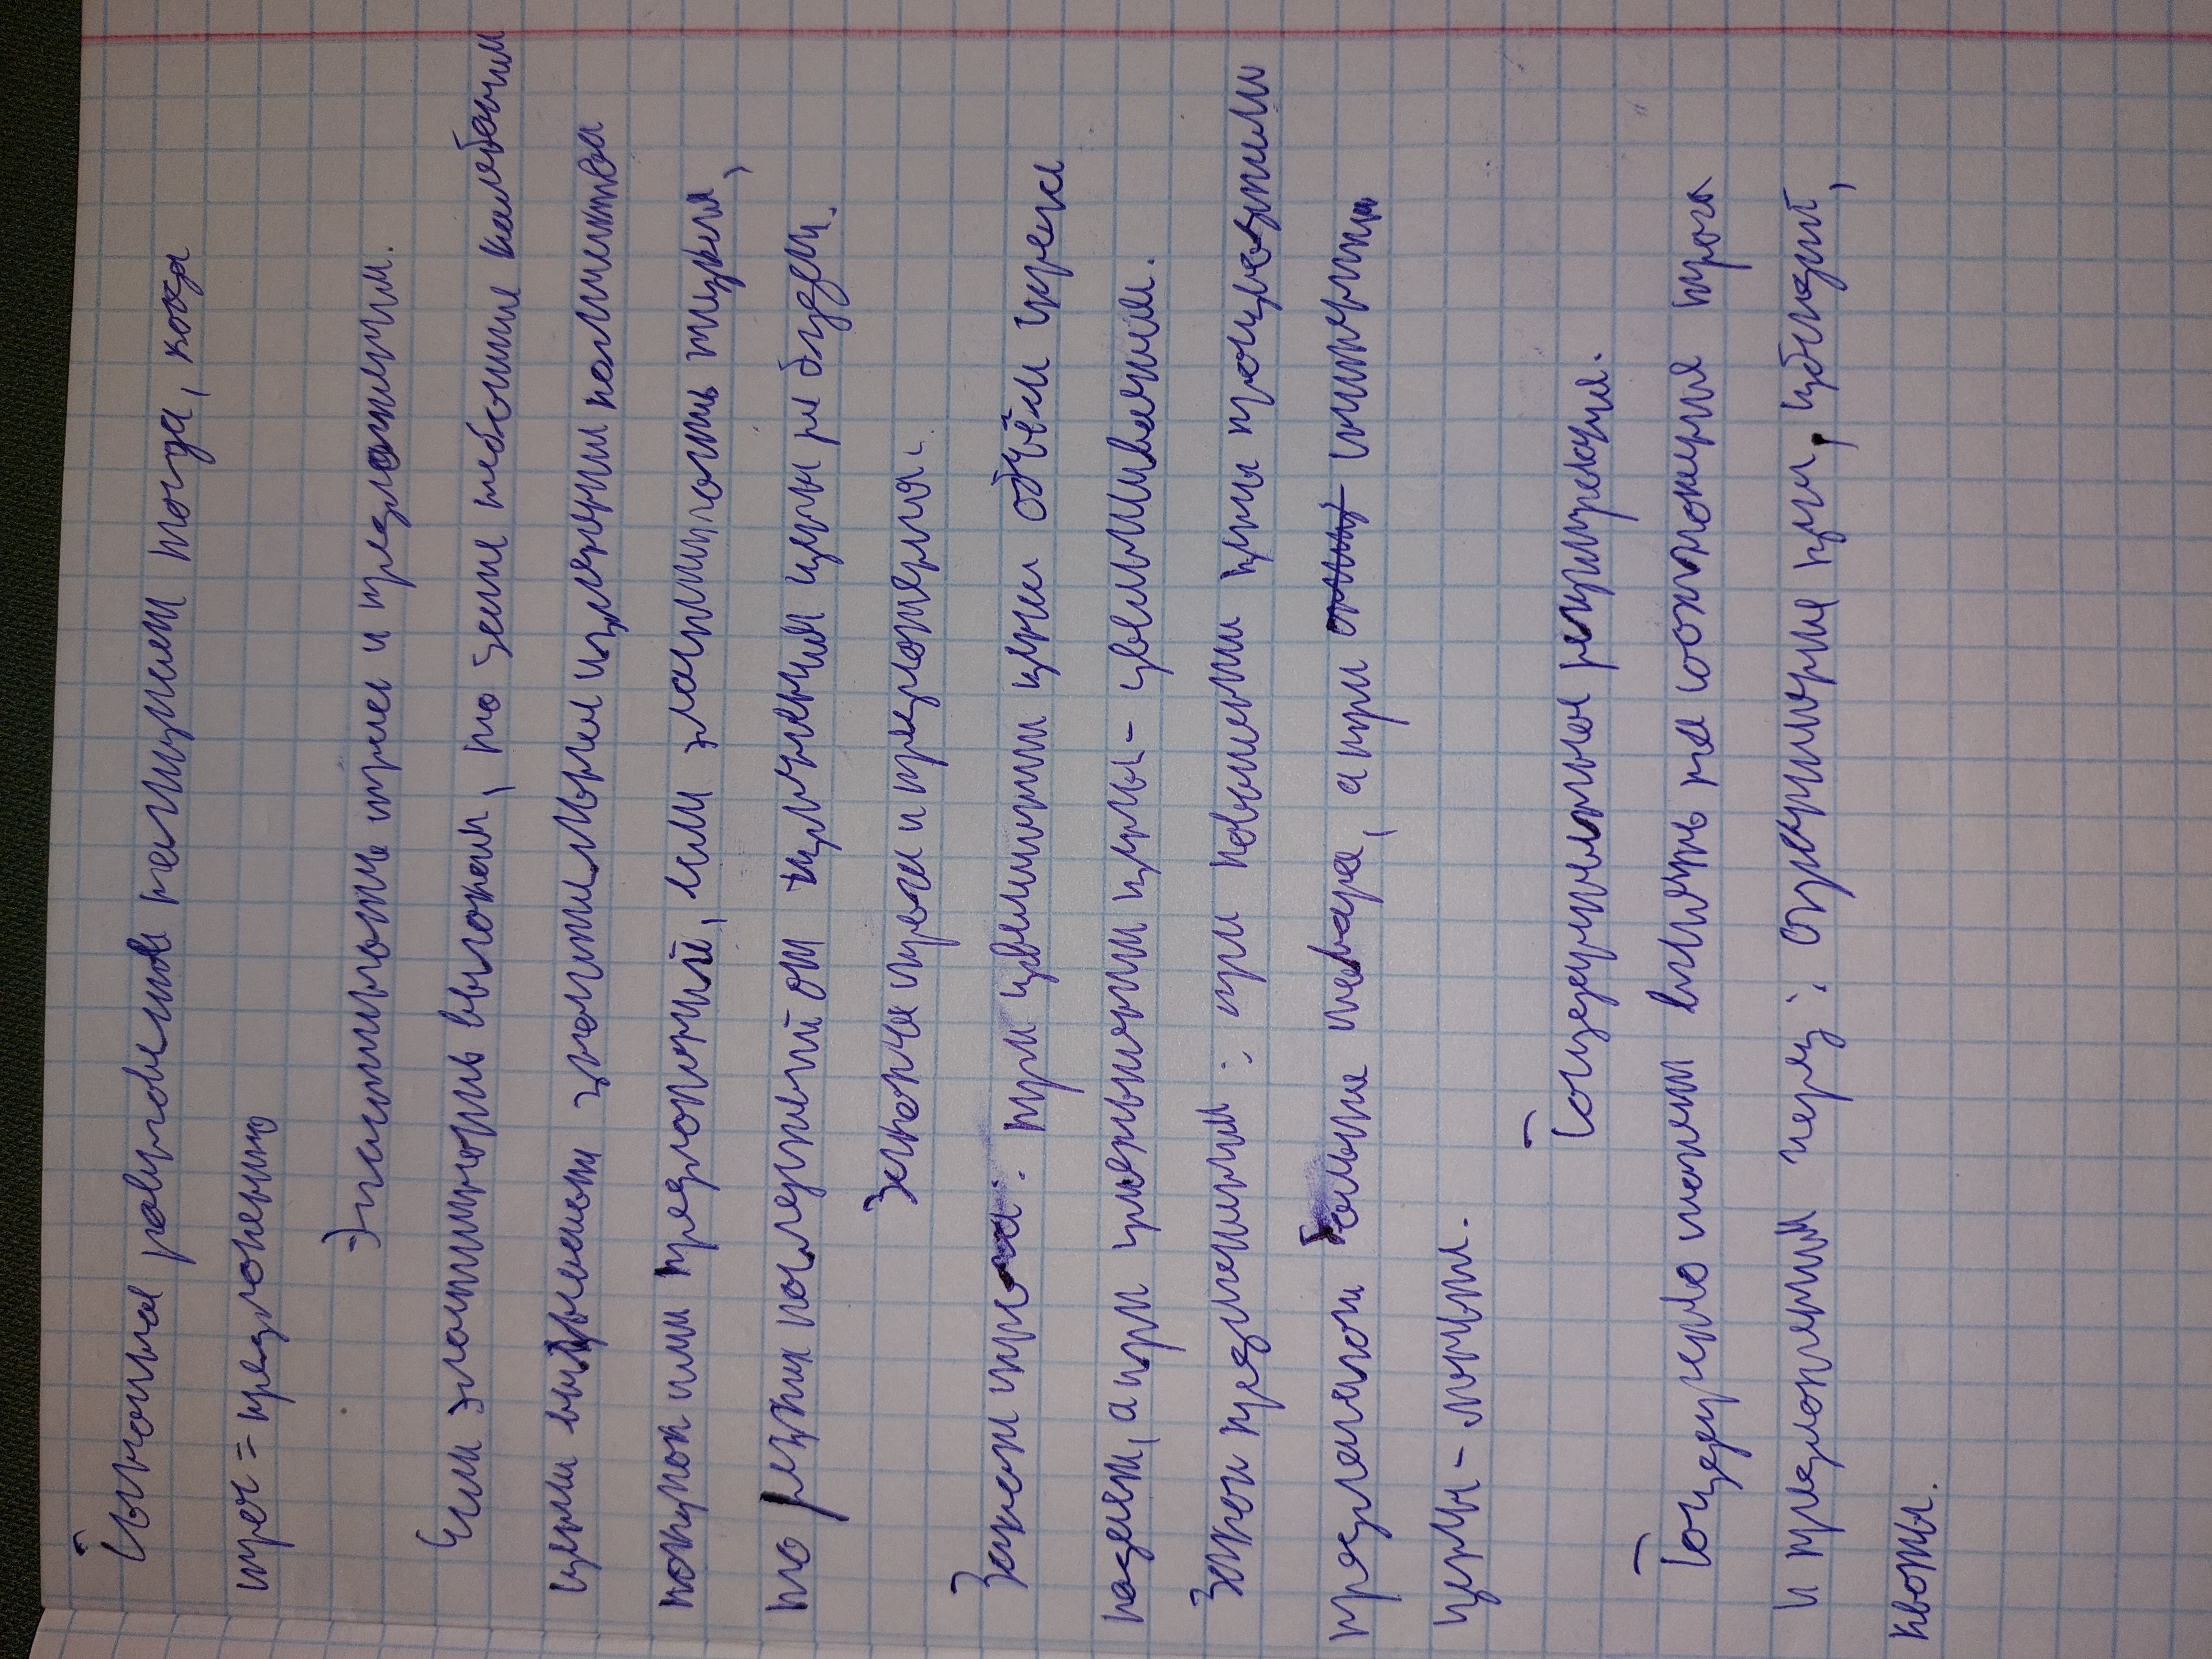 Рыночное равновесие наступает тогда, когда
спрос = предложению
Эластичность спроса и предложения.
Чем эластичность высокая, то даже небольшие колебания
цены вызывают значительные изменения количества
покупок или предложений, если эластичность низкая,
то резких последствий от изменения цены не будет.
Законы спроса и предложения.
Закон спроса: при увеличении цены объём спроса
падает, а при уменьшении цены - увеличивается.
Закон предложения: при повышении цены производители
предлагают больше товара, а при снижении
цены - меньше.
Государственное регулирование.
Государство может влиять на соотношение спроса
и предложения через: ограничение цен, субсидий,
квоты.